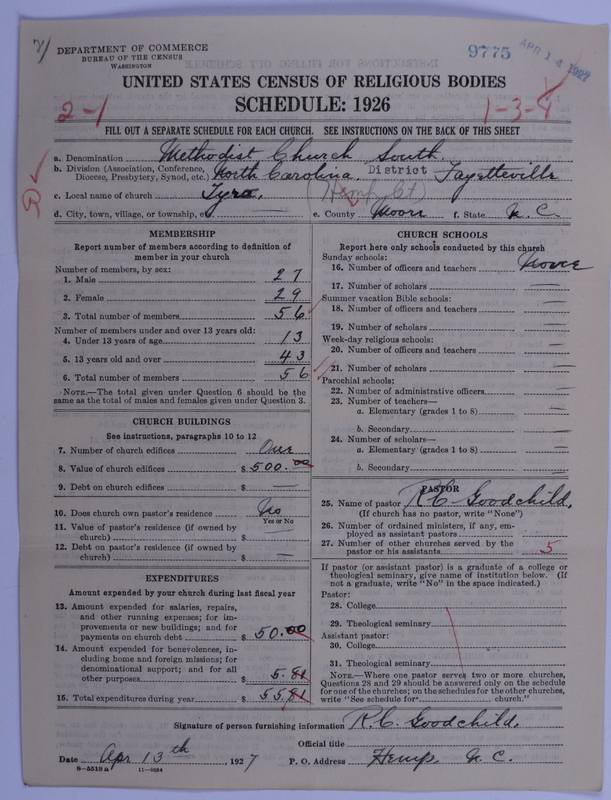 DEPARTMENT OF COMMERCE
BUREAU OF THE CENSUS
WASHINGTON
9775
APR 14 1927
UNITED STATES CENSUS OF RELIGIOUS BODIES
SCHEDULE: 1926
2-1
1-3-4
FILL OUT A SEPARATE SCHEDULE FOR EACH CHURCH. SEE INSTRUCTIONS ON THE BACK OF THIS SHEET
a. Denomination Methodist Church South.
b. Division (Association, Conference, Diocese, Presbytery, Synod, etc.) North Carolina. District Fayetteville
c. Local name of church Tyro. (Hemp Ct)
d. City, town, village, or township, etc. e. County Moore f. State N. C.
MEMBERSHIP
Report number of members according to definition of
member in your church
Number of members, by sex:
1. Male 27
2. Female 29
3. Total number of members 56
Number of members under and over 13 years old:
4. Under 13 years of age 13
5. 13 years old and over 43
6. Total number of members 56
NOTE.—The total given under Question 6 should be
same as the total of males and females given under Question 3.
CHURCH BUILDINGS
See instructions, paragraphs 10 to 12
7. Number of church edifices One
8. Value of church edifices $ 500.00
9. Debt on church edifices $ —
10. Does church own pastor's residence No
Yes or No
11. Value of pastor's residence (if owned by
church) $ —
12. Debt on pastor's residence (if owned by
church) $ —
EXPENDITURES
Amount expended by your church during last fiscal year
13. Amount expended for salaries, repairs,
and other running expenses; for im-
provements or new buildings; and for
payments on church debt $ 50.00
14. Amount expended for benevolences, in-
cluding home and foreign missions; for
denominational support; and for all
other purposes $ 5.81
15. Total expenditures during year $ 55.81
CHURCH SCHOOLS
Report here only schools conducted by this church
Sunday schools:
16. Number of officers and teachers None
17. Number of scholars —
Summer vacation Bible schools:
18. Number of officers and teachers —
19. Number of scholars —
Week-day religious schools:
20. Number of officers and teachers —
21. Number of scholars —
Parochial schools:
22. Number of administrative officers —
23. Number of teachers—
a. Elementary (grades 1 to 8) —
b. Secondary —
24. Number of scholars—
a. Elementary (grades 1 to 8) —
b. Secondary —
PASTOR
25. Name of pastor R C Goodchild,
(If church has no pastor, write "None")
26. Number of ordained ministers, if any, em-
ployed as assistant pastors —
27. Number of other churches served by the
pastor or his assistants 5
If pastor (or assistant pastor) is a graduate of a college or
theological seminary, give name of institution below. (If
not a graduate, write "No" in the space indicated.)
Pastor:
28. College
29. Theological seminary
Assistant pastor:
30. College
31. Theological seminary
NOTE.—Where one pastor serves two or more churches,
Questions 28 and 29 should be answered only on the schedule
for one of the churches; on the schedules for the other churches,
write "See schedule for church."
Signature of person furnishing information R. C. Goodchild,
Official title
Date Apr 13th, 1927 P. O. Address Hemp, N. C.
8—5518 a 11—9554